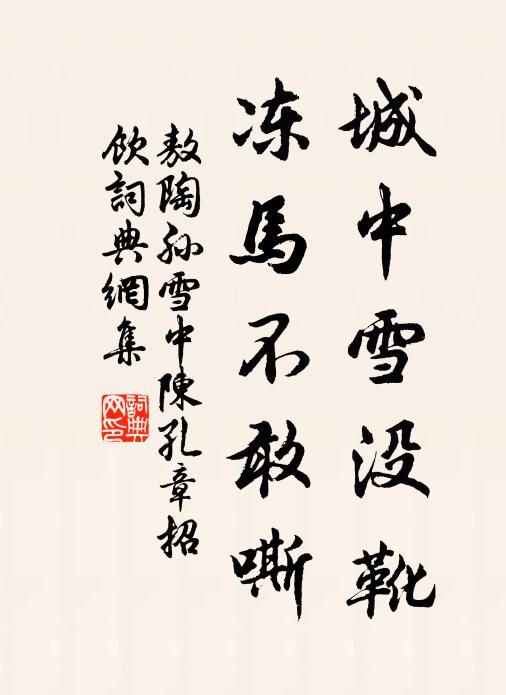 城中雪没靴
冻馬不敢嘶
敖陶孙雪中陳孔章招
飲詞典網集
詞典
网印